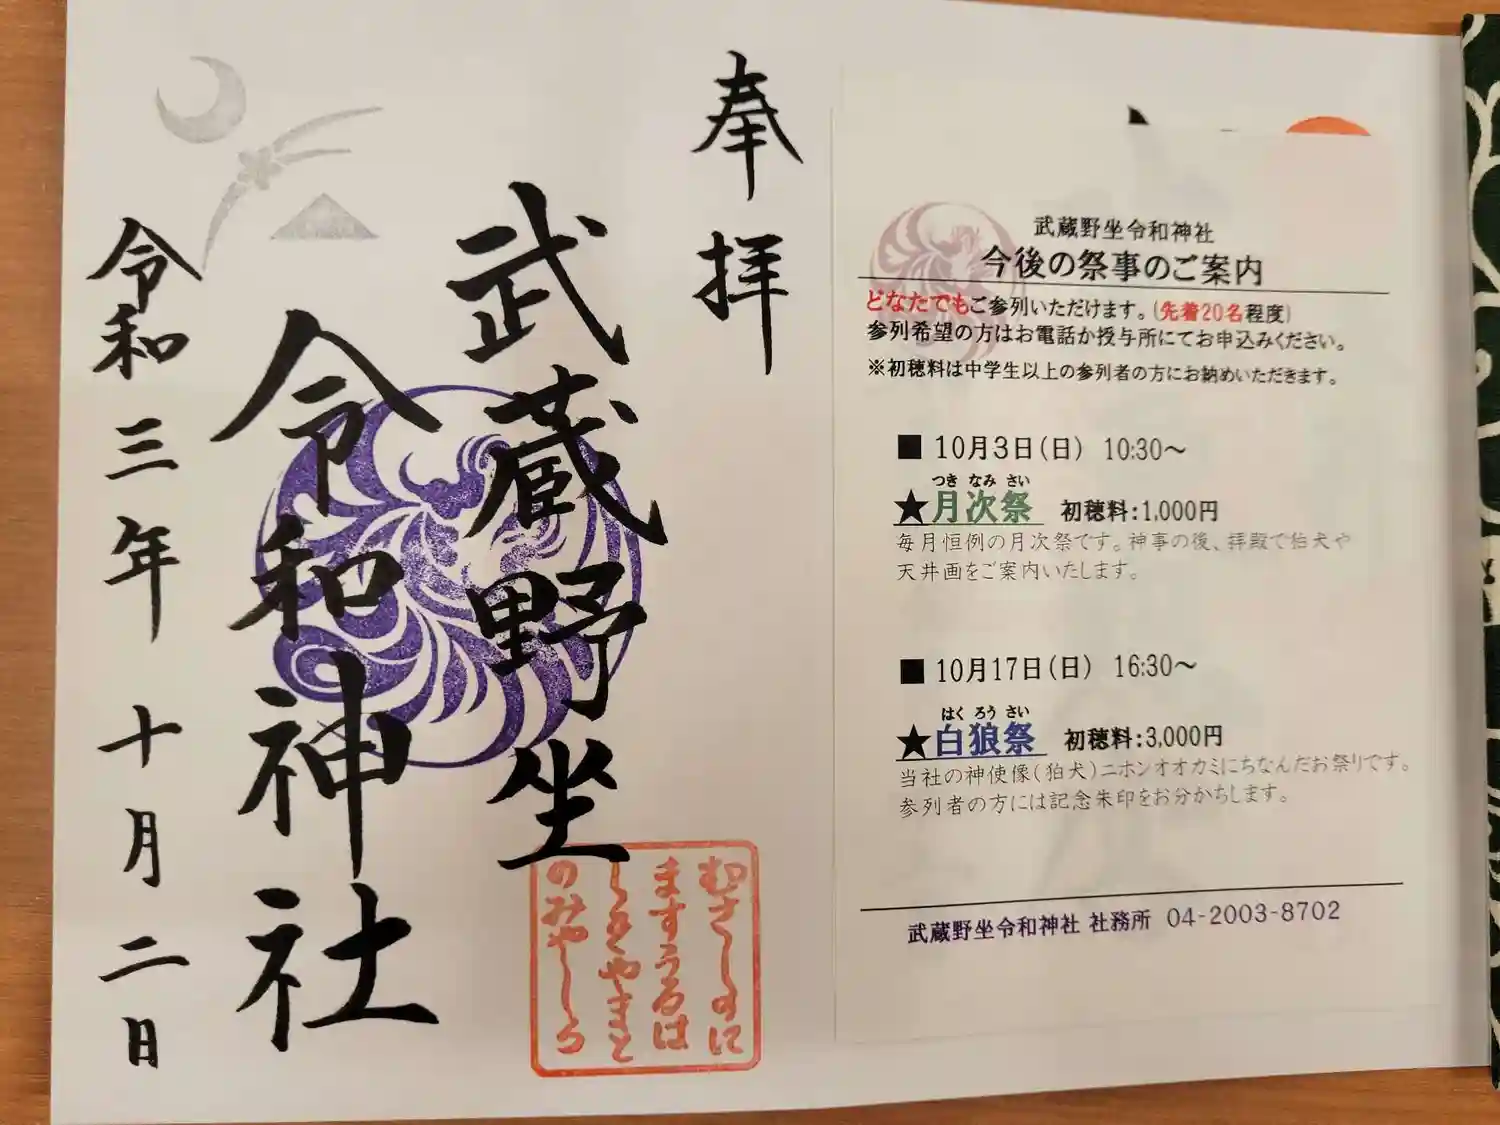 奉拝
武蔵野坐
令和神社
令和三年十月二日
むさしのに
ますうるは
しきやまと
のみやしろ
武蔵野坐令和神社
今後の祭事のご案内
どなたでもご参列いただけます。(先着20名程度)
参列希望の方はお電話か授与所にてお申込みください。
※初穂料は中学生以上の参列者の方にお納めいただきます。
■ 10月3日(日) 10:30～
つき なみ さい
★月次祭 初穂料:1,000円
毎月恒例の月次祭です。神事の後、拝殿で狛犬や
天井画をご案内いたします。
■ 10月17日(日) 16:30～
はく ろう さい
★白狼祭 初穂料:3,000円
当社の神使像(狛犬)ニホンオオカミにちなんだお祭りです。
参列者の方には記念朱印をお分かちします。
武蔵野坐令和神社 社務所 04-2003-8702